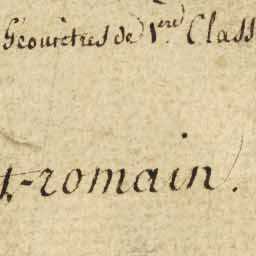 Géomètres de 1.ere Class
t-romain.